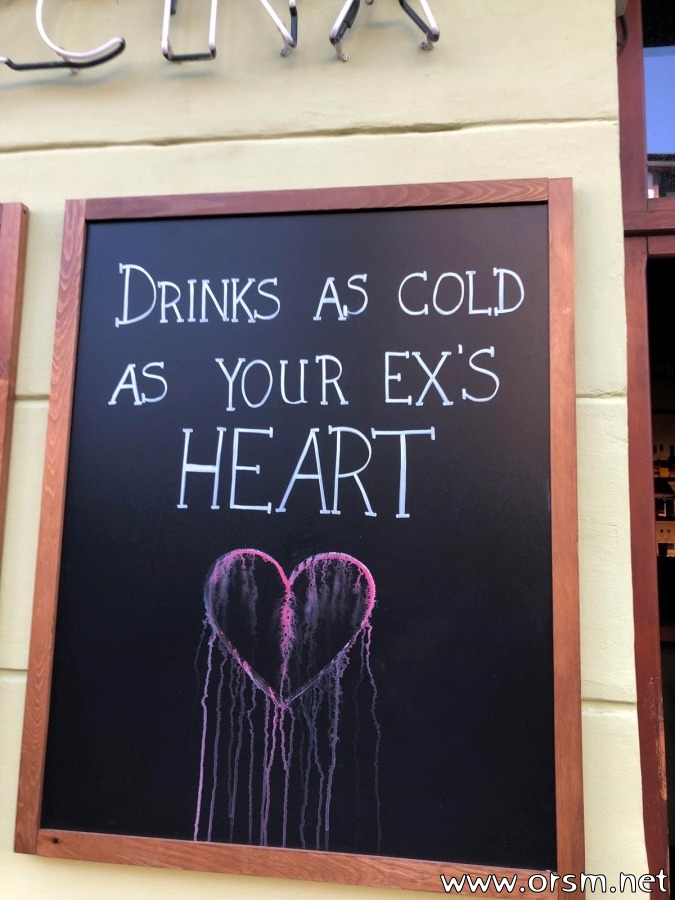 DRINKS AS COLD
AS YOUR EX'S
HEART
www.orsm.net